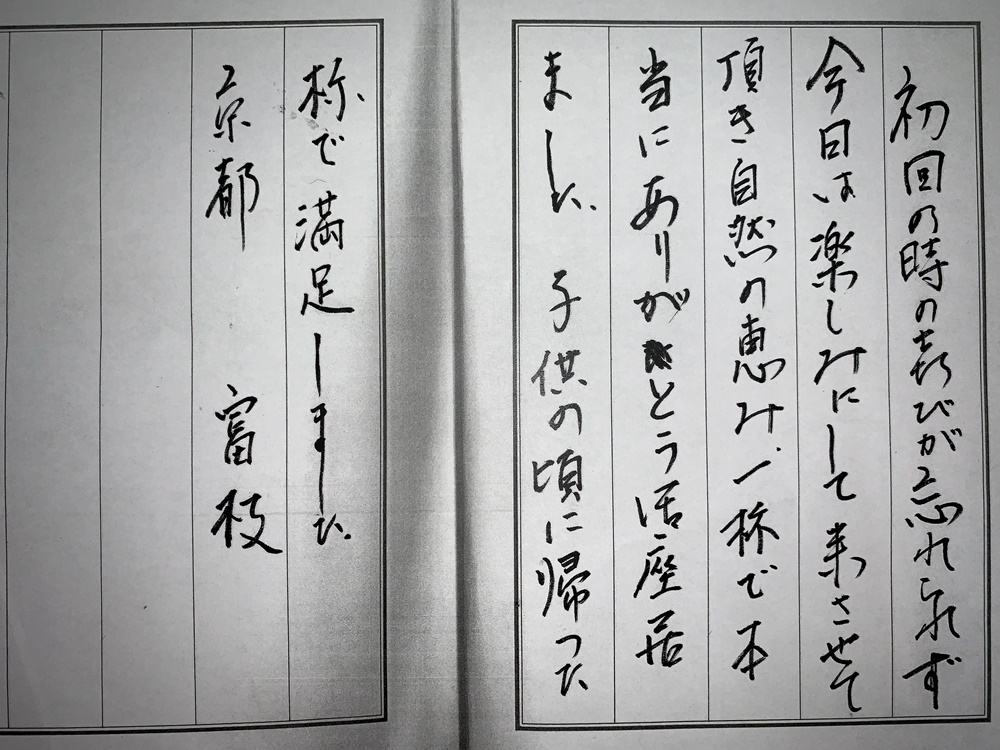 初回の時の喜びが忘れられず
今日は楽しみにして来させて
頂き自然の恵み、一杯で本
当にありがとう御座居
ました。子供の頃に帰った
様で満足しました。
京都　富枝